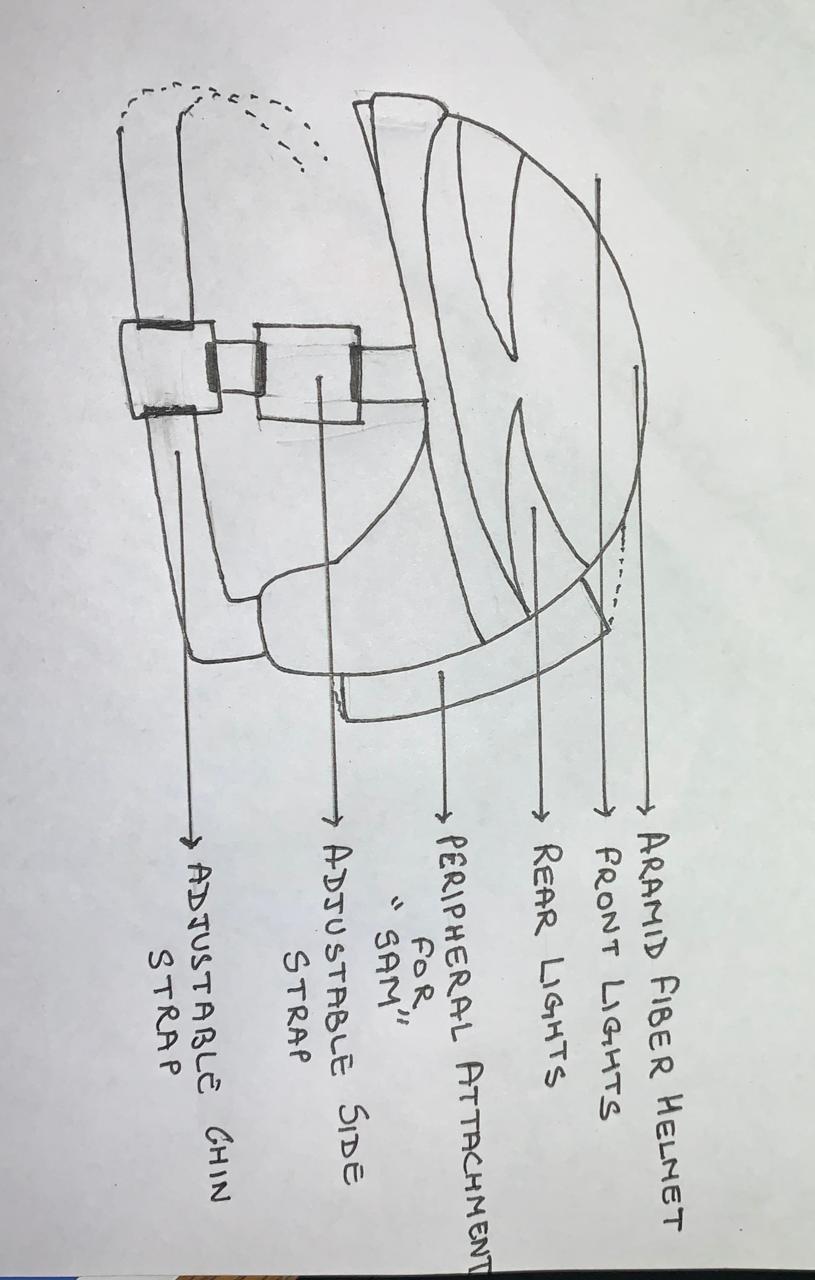 ARAMID FIBER HELMET
FRONT LIGHTS
REAR LIGHTS
PERIPHERAL ATTACHMENT
FOR
"SAM"
ADJUSTABLE SIDE
STRAP
ADJUSTABLE CHIN
STRAP